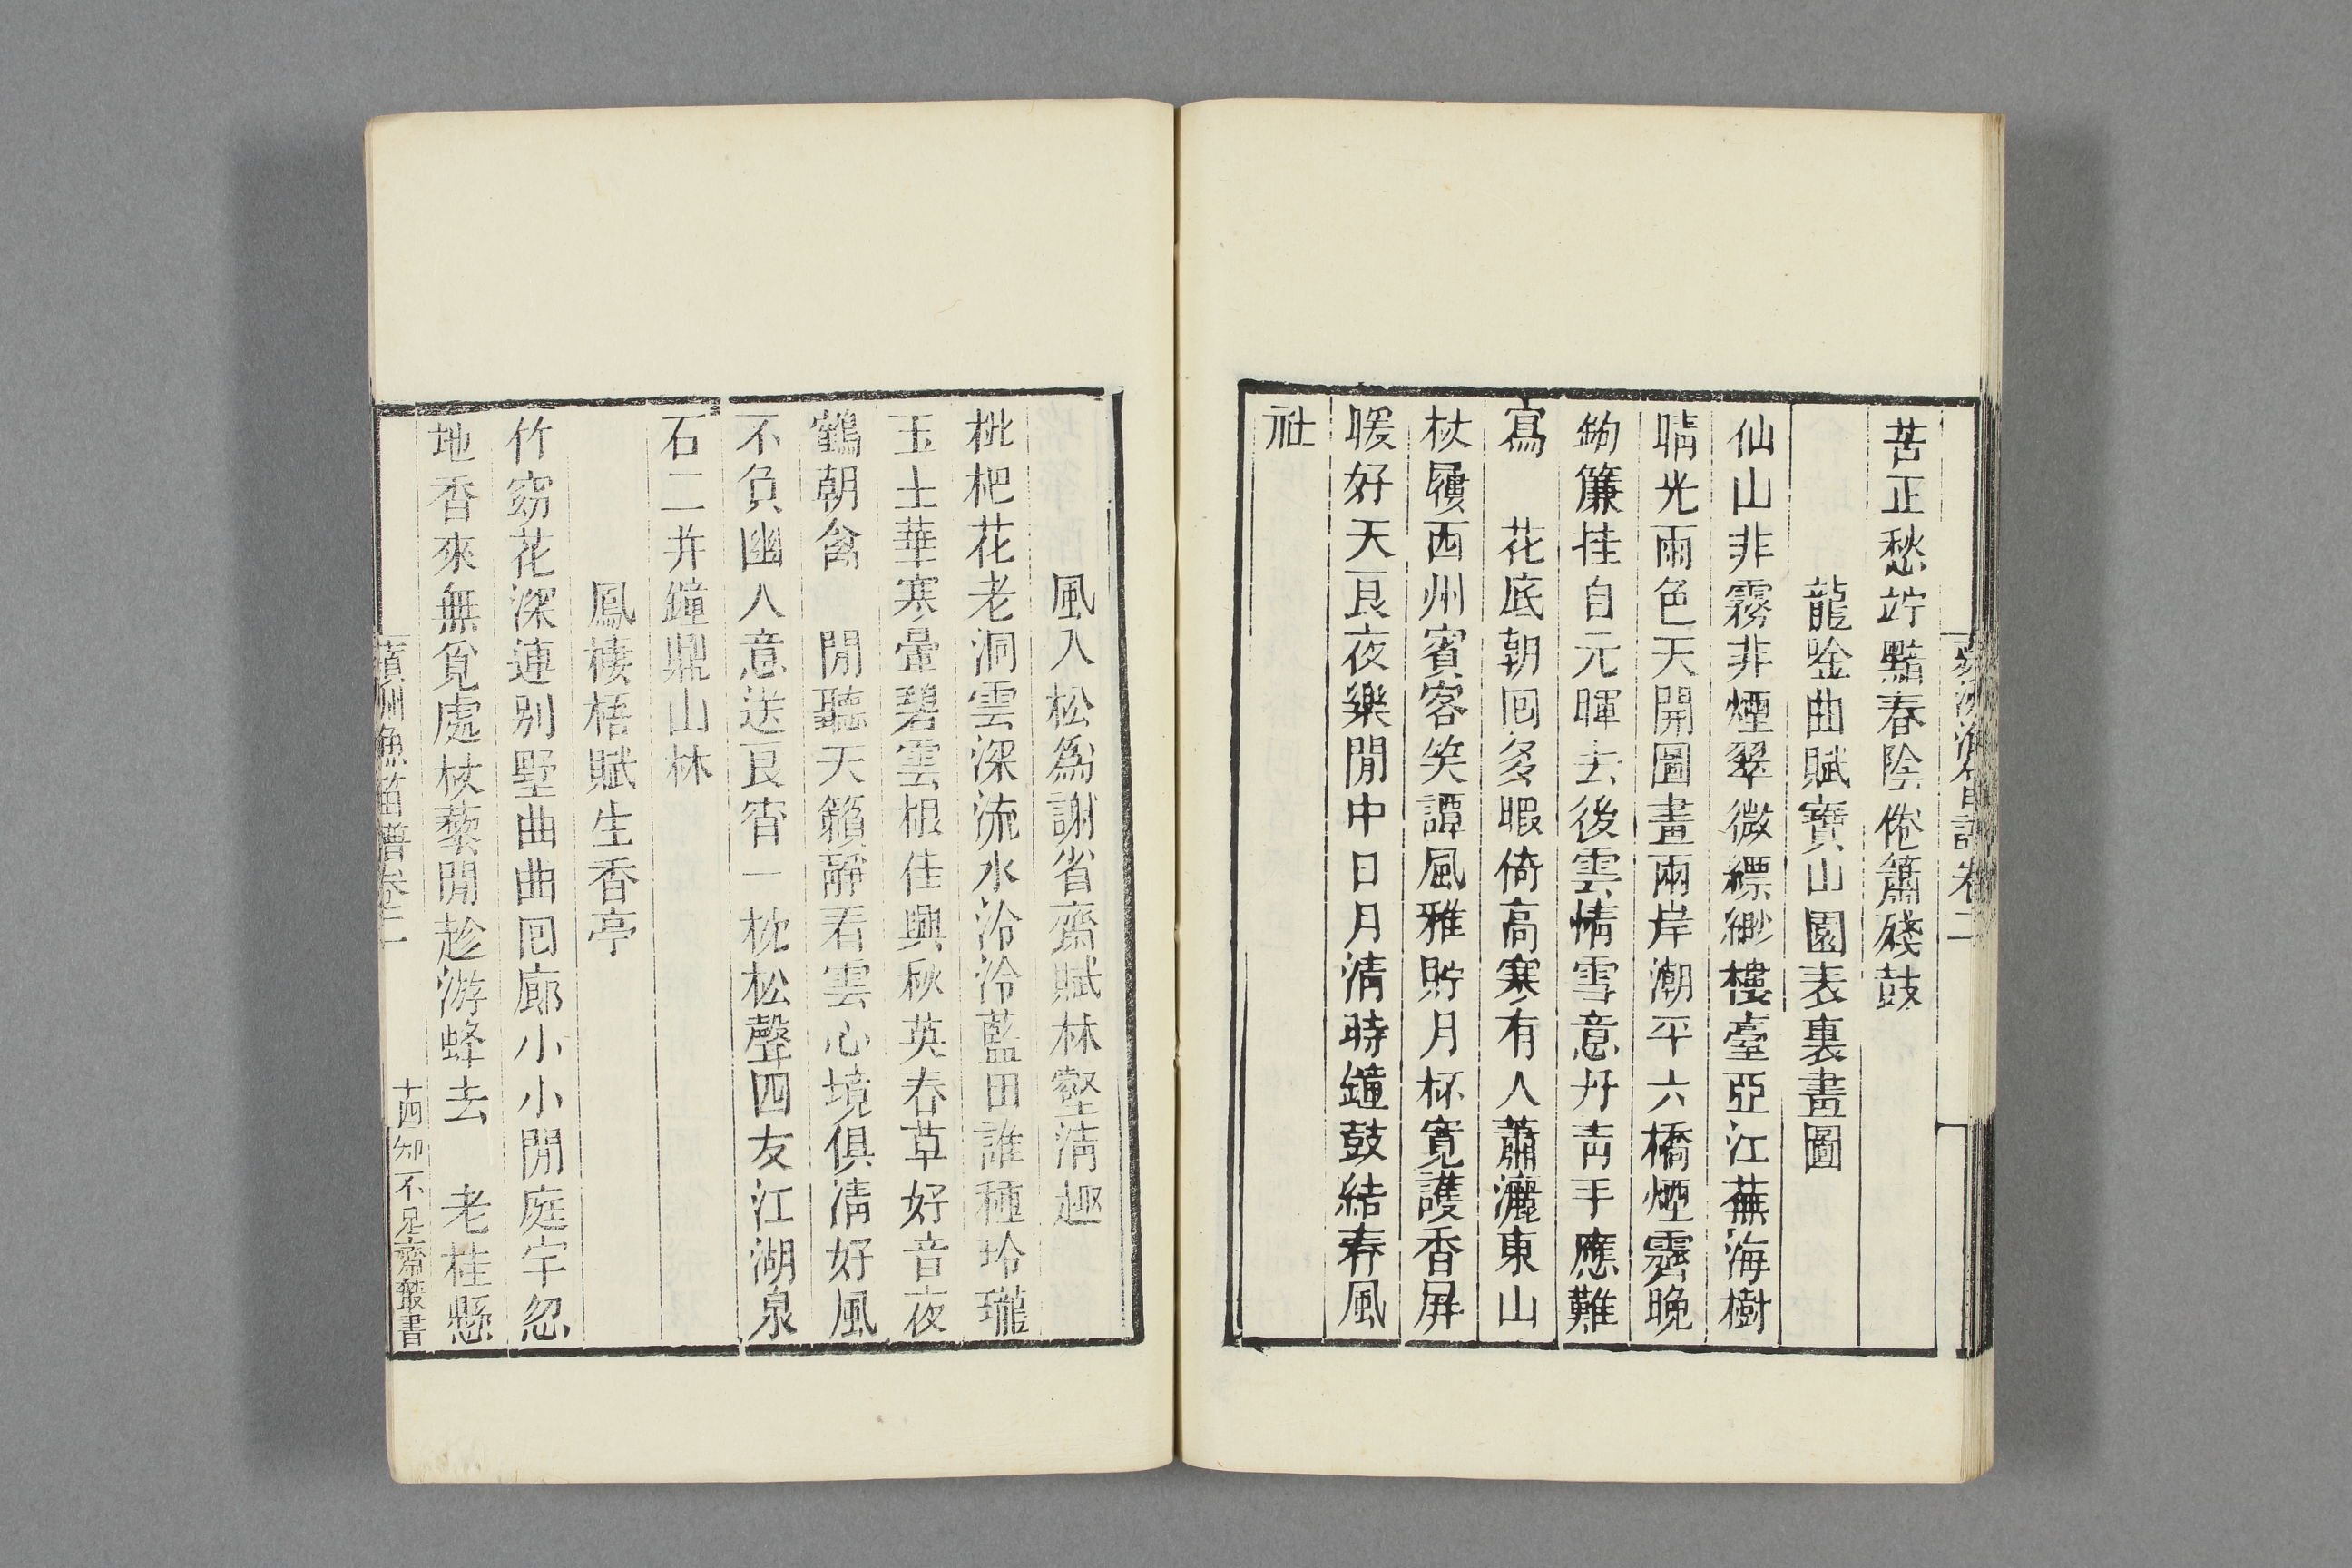 蘋洲漁笛譜卷二
苦正愁竚黯春陰倦簫殘鼓
龍唫曲賦寶山園表裏畫圖
仙山非霧非煙翠微縹緲樓臺亞江蕪海樹
晴光雨色天開圖畫兩岸潮平六橋煙霽晚
鉤簾挂自元暉去後雲情雪意丹青手應難
寫　花底朝囘多暇倚高寒有人蕭灑東山
杖屨西州賓客笑譚風雅貯月杯寬護香屏
暖好天良夜樂閒中日月清時鐘鼓結春風
社
風入松爲謝省齋賦林壑清趣
枇杷花老洞雲深流水泠泠藍田誰種玲瓏
玉土華寒暈碧雲根佳興秋英春草好音夜
鶴朝禽　閒聽天籟靜看雲心境俱清好風
不負幽人意送良宵一枕松聲四友江湖泉
石二并鐘鼎山林
鳳棲梧賦生香亭
竹窈花深連别墅曲曲囘廊小小閒庭宇忽
地香來無覓處杖藜閒趁游蜂去　老桂懸
蘋洲漁笛譜卷二
十四
知不足齋叢書